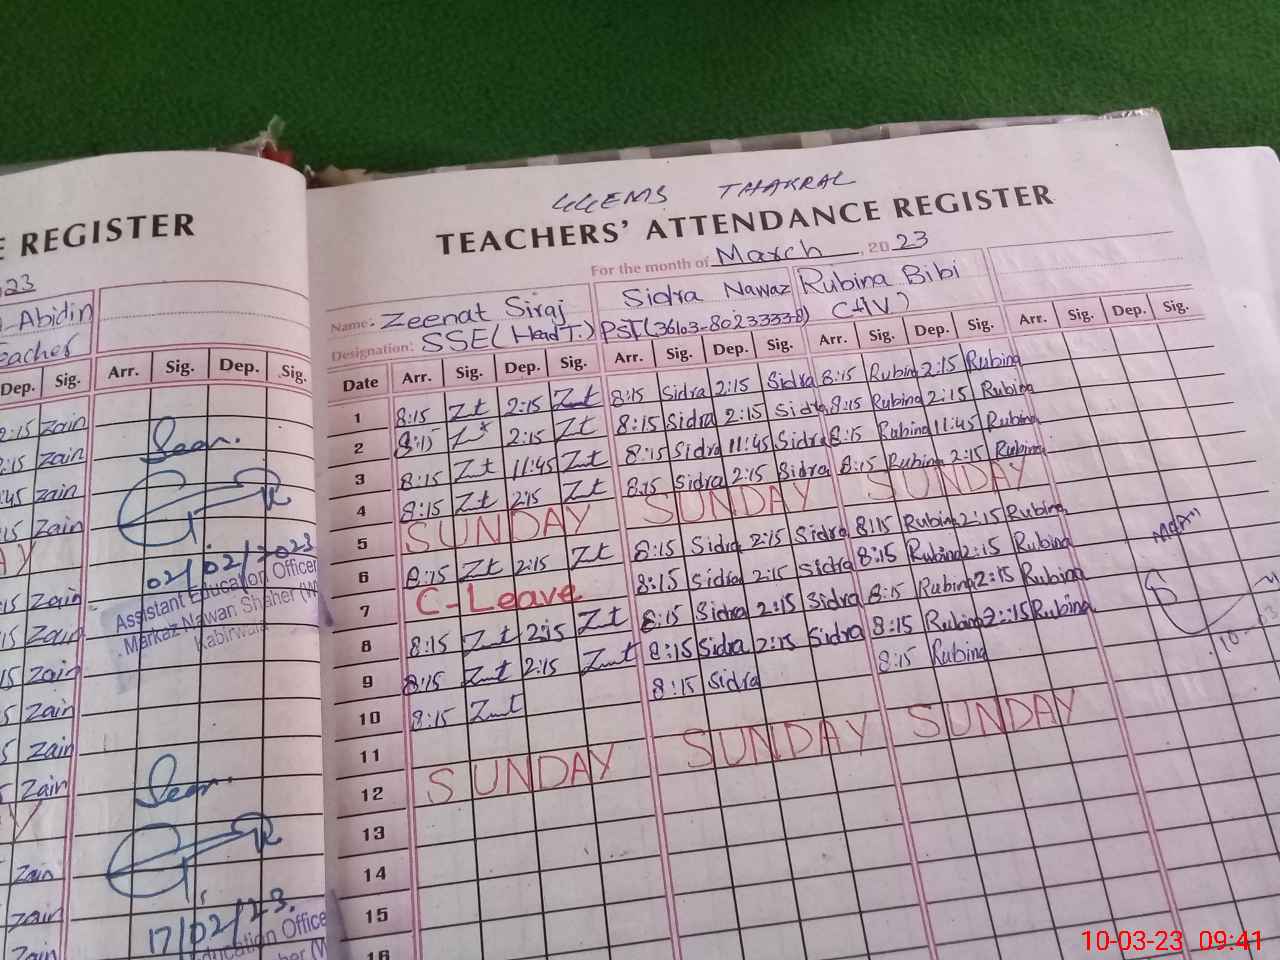 E REGISTER
23
-Abidin
eacher
Dep. Sig. Arr. Sig. Dep. Sig.
2:15 Zain
:15 Zain
:45 Zain
15 Zain
AY
:15 Zain
15 Zain
15 Zain
5 Zain
5 Zain
5 Zain
Y
Zain
Zain
Zain
02/02/2023
Assistant Education Officer
Markaz Nawan Shaher (W
Kabirwala
17/02/23.
ucation Office
her (W
GGEMS THAKRAL
TEACHERS' ATTENDANCE REGISTER
For the month of March, 20 23
Name: Zeenat Siraj Sidra Nawaz Rubina Bibi
Designation: SSE (Head T.) PST (36103-8023333-8) C-(IV)
Date Arr. Sig. Dep. Sig. Arr. Sig. Dep. Sig. Arr. Sig. Dep. Sig. Arr. Sig. Dep. Sig.
1 8:15 Zt 2:15 Zt 8:15 Sidra 2:15 Sidra 8:15 Rubina 2:15 Rubina
2 8:15 Zt 2:15 Zt 8:15 Sidra 2:15 Sidra 8:15 Rubina 2:15 Rubina
3 8:15 Zt 11:45 Znt 8:15 Sidra 11:45 Sidra 8:15 Rubina 11:45 Rubina
4 8:15 Zt 2:15 Zt 8:15 Sidra 2:15 Sidra 8:15 Rubina 2:15 Rubina
5 SUNDAY SUNDAY SUNDAY
6 8:15 Zt 2:15 Zt 8:15 Sidra 2:15 Sidra 8:15 Rubina 2:15 Rubina
7 C-Leave 8:15 Sidra 2:15 Sidra 8:15 Rubina 2:15 Rubina
8 8:15 Znt 2:15 Zt 8:15 Sidra 2:15 Sidra 8:15 Rubina 2:15 Rubina
9 8:15 Znt 2:15 Znt 8:15 Sidra 2:15 Sidra 8:15 Rubina 2:15 Rubina
10 8:15 Znt 8:15 Sidra 8:15 Rubina
11
12 SUNDAY SUNDAY SUNDAY
13
14
15
16
10-03-23 09:41